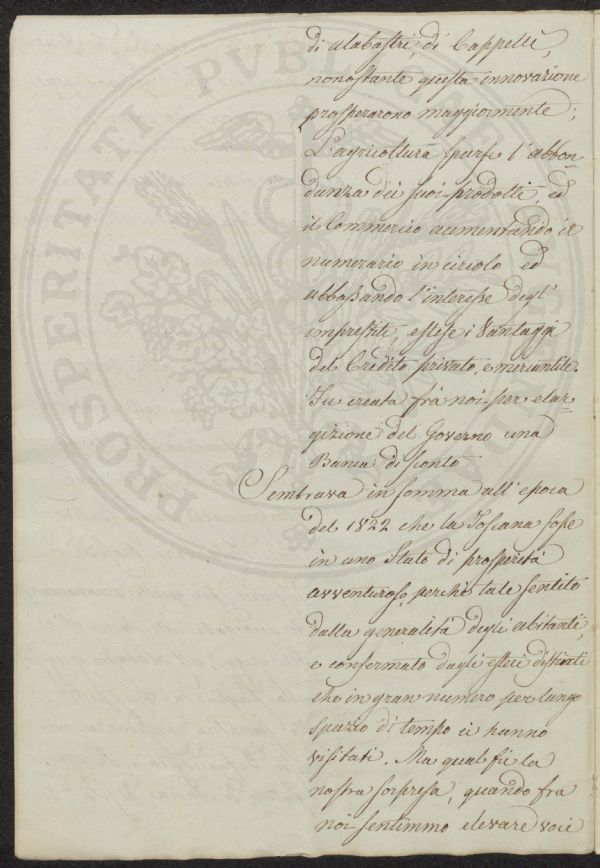 di alabastri, di Cappelli,
nonostante questa innovazione
prosperarono maggiormente;
L'agricoltura sparse l'abbon-
danza dei suoi prodotti, ed
il Commercio aumentando il
numerario in circolo ed
abbassando l'interesse degl'
imprestiti, estese i Vantaggi
del Credito privato, e mercantile.
Fu creata frà noi per elar-
gizione del Governo una
Banca di sconto
Sembrava in somma all'epoca
del 1822 che la Toscana fosse
in uno Stato di prosperità
avventuroso, perchè tale sentito
dalla generalità degli abitanti,
e confermato dagli esteri distinti
che in gran numero per lungo
spazio di tempo ci hanno
visitati. Ma qual fù la
nostra sorpresa, quando fra
noi sentimmo elevare voci
PROSPERITATI PVBLICAE